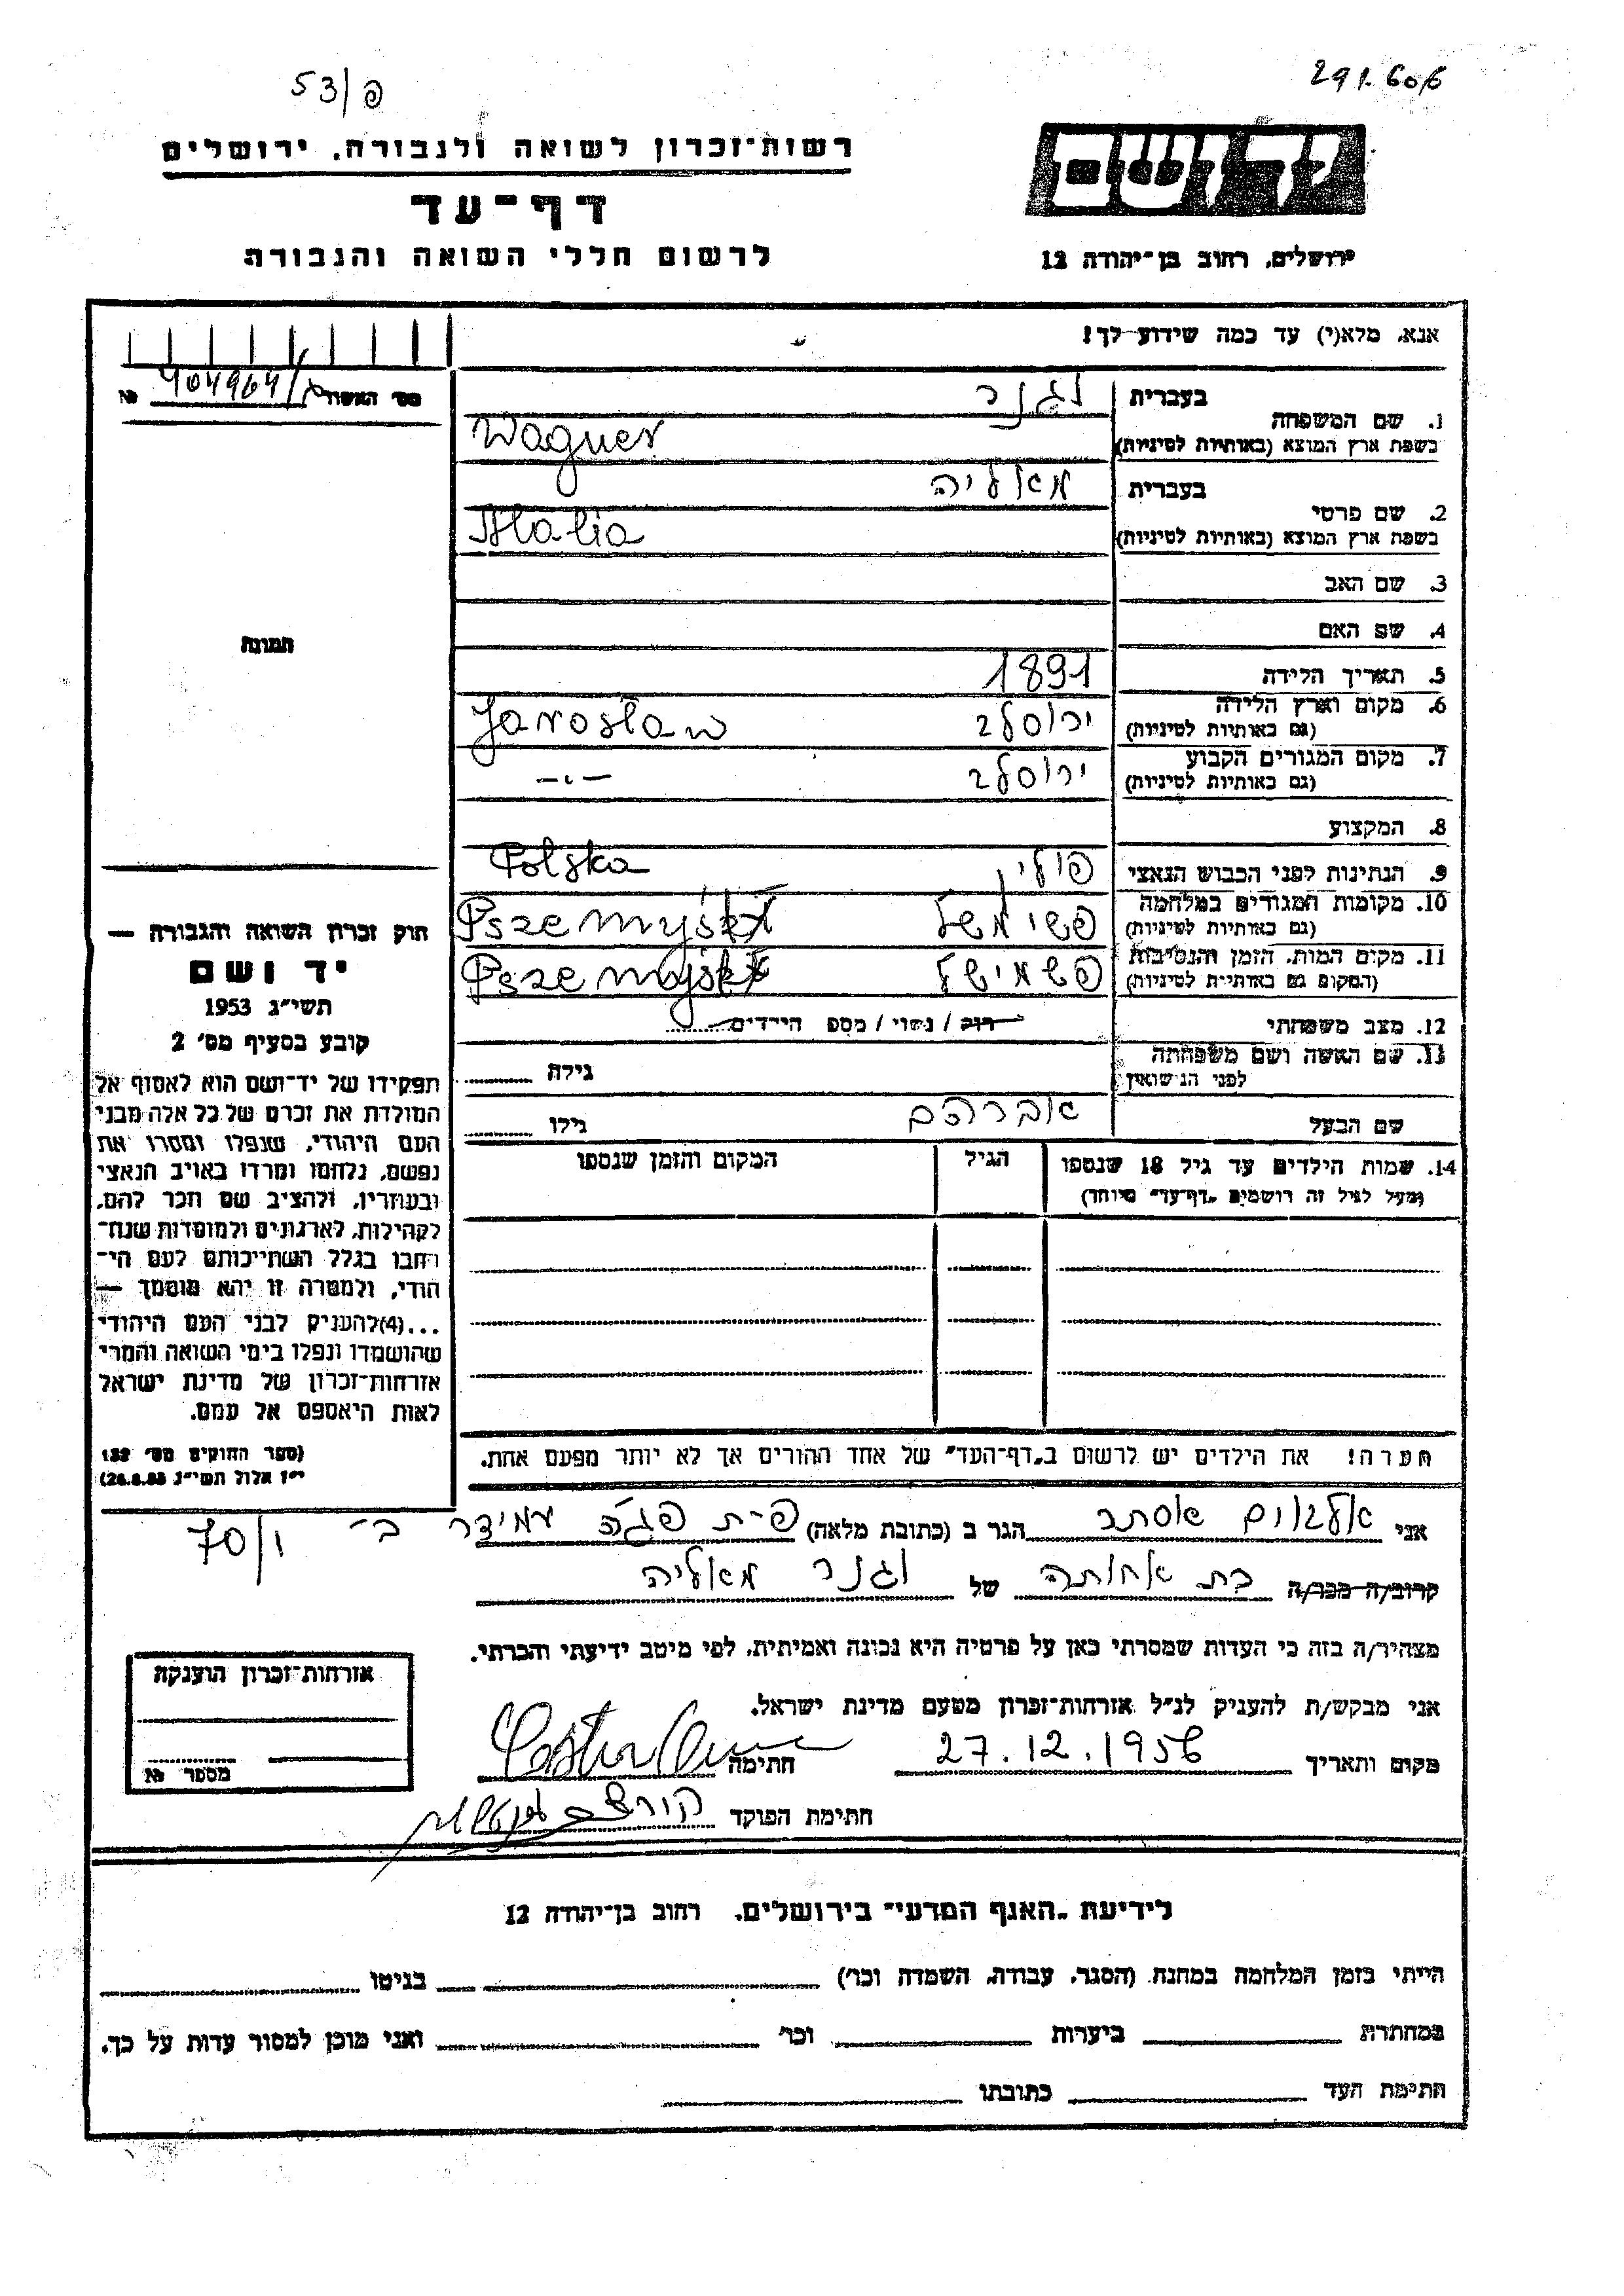 53/פ
291.606
רשות-זכרון לשואה ולגבורה, ירושלים
דף-עד
לרשום חללי השואה והגבורה
יד ושם
ירושלים, רחוב בן-יהודה 12
אנא, מלא(י) עד כמה שידוע לך!
מס' האשור № 404964/
1. שם המשפחה
בעברית
וגנר
בשפת ארץ המוצא (באותיות לטיניות)
Wagner
2. שם פרטי
בעברית
מאליה
בשפת ארץ המוצא (באותיות לטיניות)
3. שם האב
4. שם האם
תמונה
5. תאריך הלידה
1891
6. מקום וארץ הלידה
(גם באותיות לטיניות)
ירוסלב Jarosław
7. מקום המגורים הקבוע
(גם באותיות לטיניות)
ירוסלב -"-
8. המקצוע
9. הנתינות לפני הכבוש הנאצי
פולין Polska
10. מקומות המגורים במלחמה
(גם באותיות לטיניות)
פשימשל
11. מקום המות, הזמן והנסיבות
(המקום גם באותיות לטיניות)
פשמישל
12. מצב משפחתי
רוק / נשוי / מספ הילדים
13. שם האשה ושם משפחתה
לפני הנישואין
גילה
שם הבעל
אברהם
גילו
14. שמות הילדים עד גיל 18 שנספו
(מעל לגיל זה רושמים "דף-עד" מיוחד)
הגיל
המקום והזמן שנספו
חוק זכרון השואה והגבורה —
יד ושם
תשי"ג 1953
קובע בסעיף מס' 2
תפקידו של יד-ושם הוא לאסוף אל
המולדת את זכרם של כל אלה מבני
העם היהודי, שנפלו ומסרו את
נפשם, נלחמו ומרדו באויב הנאצי
ובעוזריו, ולהציב שם וזכר להם,
לקהילות, לארגונים ולמוסדות שנח-
רחבו בגלל השתייכותם לעם הי-
הודי, ולמטרה זו יהא מוסמך —
...(4)להעניק לבני העם היהודי
שהושמדו ונפלו בימי השואה והמרי
אזרחות-זכרון של מדינת ישראל
לאות היאספם אל עמם.
(ספר החוקים מס' 132
י"ז אלול תשי"ג 28.8.53)
הערה! את הילדים יש לרשום ב"דף-העד" של אחד ההורים אך לא יותר מפעם אחת.
אני אלבוים אסתר הגר ב (כתובת מלאה) פ-ת פגה עמידר ב- 70/ו
קרוב/ה מכר/ה בת אחותה של וגנר מאליה
מצהיר/ה בזה כי העדות שמסרתי כאן על פרטיה היא נכונה ואמיתית, לפי מיטב ידיעתי והכרתי.
אני מבקש/ת להעניק לנ"ל אזרחות-זכרון מטעם מדינת ישראל.
מקום ותאריך 27.12.1956 חתימה
חתימת הפוקד
אזרחות-זכרון הוענקה
מספר №
לידיעת "האגף המדעי" בירושלים, רחוב בן-יהודה 12
הייתי בזמן המלחמה במחנה (הסגר, עבודה, השמדה וכו') בגיטו
במחתרת ביערות וכו' ואני מוכן למסור עדות על כך.
חתימת העד כתובתו